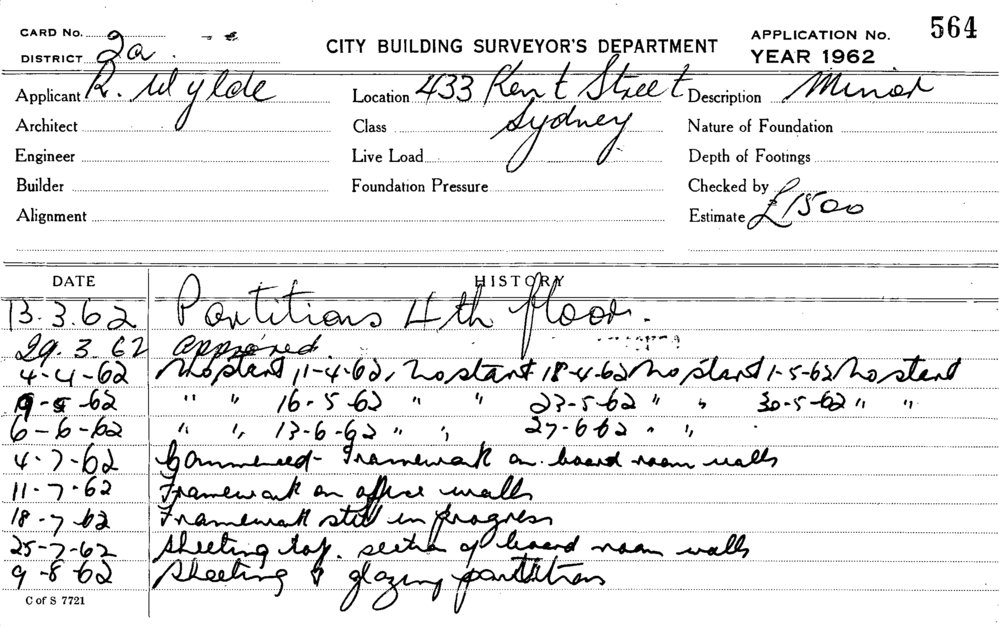 CARD No.
DISTRICT 2a
CITY BUILDING SURVEYOR'S DEPARTMENT
APPLICATION No. 564
YEAR 1962
Applicant R. Wylde
Location 433 Kent Street
Description Minor
Architect
Class Sydney
Nature of Foundation
Engineer
Live Load
Depth of Footings
Builder
Foundation Pressure
Checked by
Alignment
Estimate £1500
DATE HISTORY
13.3.62 Partitions 4th floor.
29.3.62 Approved
4-4-62 No start 11-4-62, No start 18-4-62 No start 1-5-62 No start
9-5-62 " " 16-5-62 " " 23-5-62 " " 30-5-62 " "
6-6-62 " " 13-6-62 " " 27-6-62 " "
4-7-62 Commenced - Framework on board room walls
11-7-62 Framework on office walls
18-7-62 Framework still in progress
25-7-62 Sheeting top. section of board room walls
9-8-62 Sheeting & glazing partitions
C of S 7721